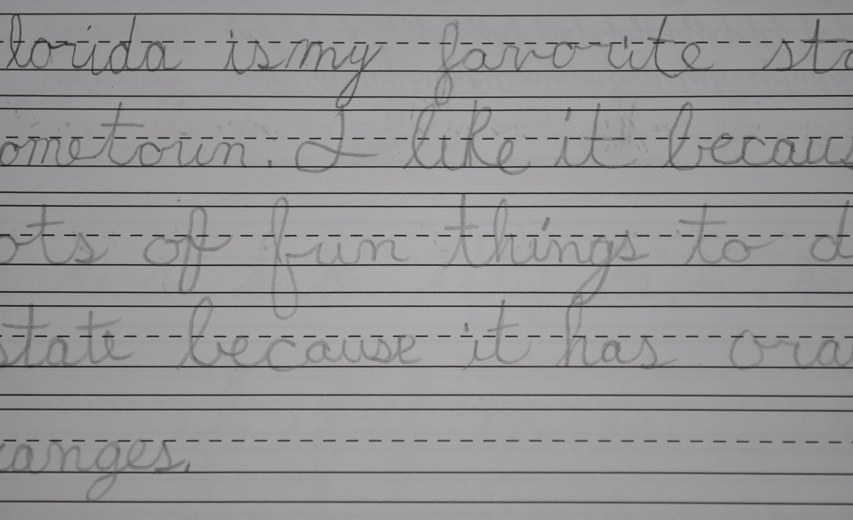 lorida is my favorite sta
ometown. I like it becaus
ots of fun things to d
state because it has ora
anges.